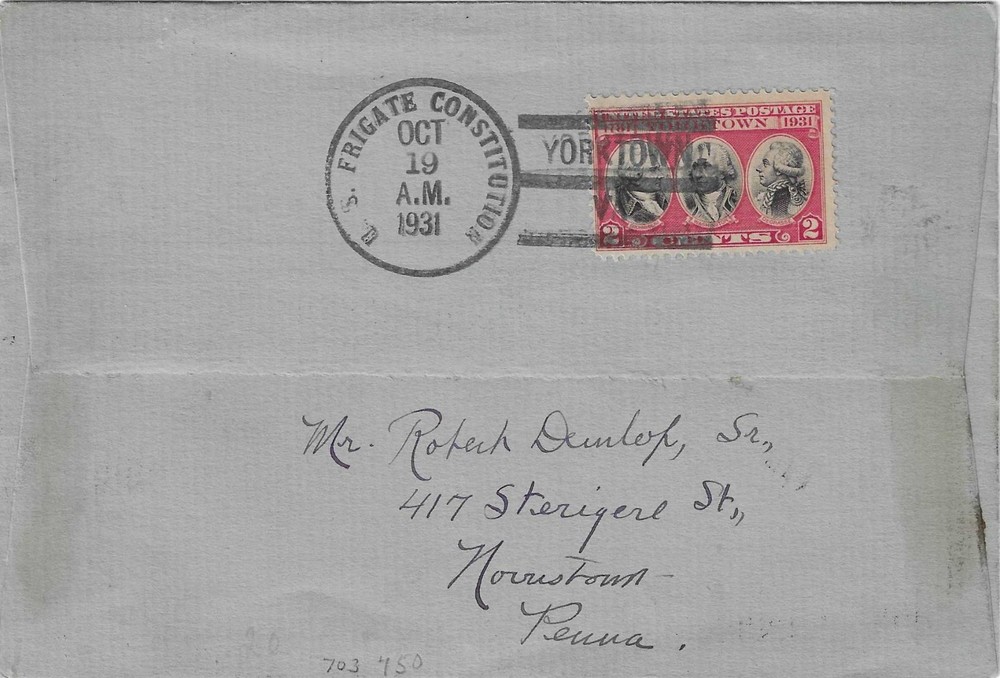 U. S. FRIGATE CONSTITUTION
OCT
19
A.M.
1931
YORKTOWN
UNITED STATES POSTAGE
YORKTOWN 1931
2 CENTS 2
Mr. Robert Dunlop, Sr.,
417 Sterigere St.,
Norristown
Penna.
20
703 450